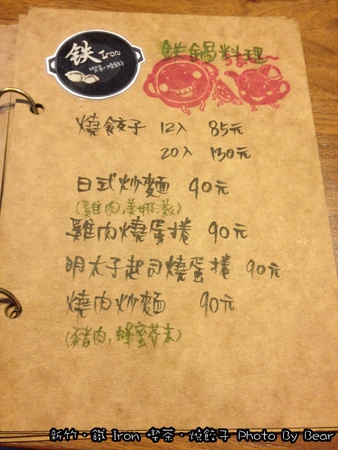 鉄 Iron
喫茶・燒餃子
鉄鍋料理
燒餃子 12入 85元
20入 130元
日式炒麵 90元
(雞肉,美奶滋)
雞肉燒蛋捲 90元
明太子起司燒蛋捲 90元
燒肉炒麵 90元
(豬肉,蜂蜜芥末)
新竹・鐵 Iron 喫茶・燒餃子 Photo By Bear